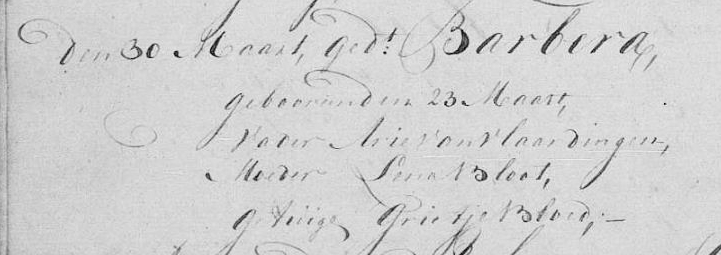 Den 30 Maart, gedt. Barbera,
gebooren den 23 Maart,
Vader Arie van Vlaardingen,
Moeder Lena Bloot,
getuige Grietje Bloed; —